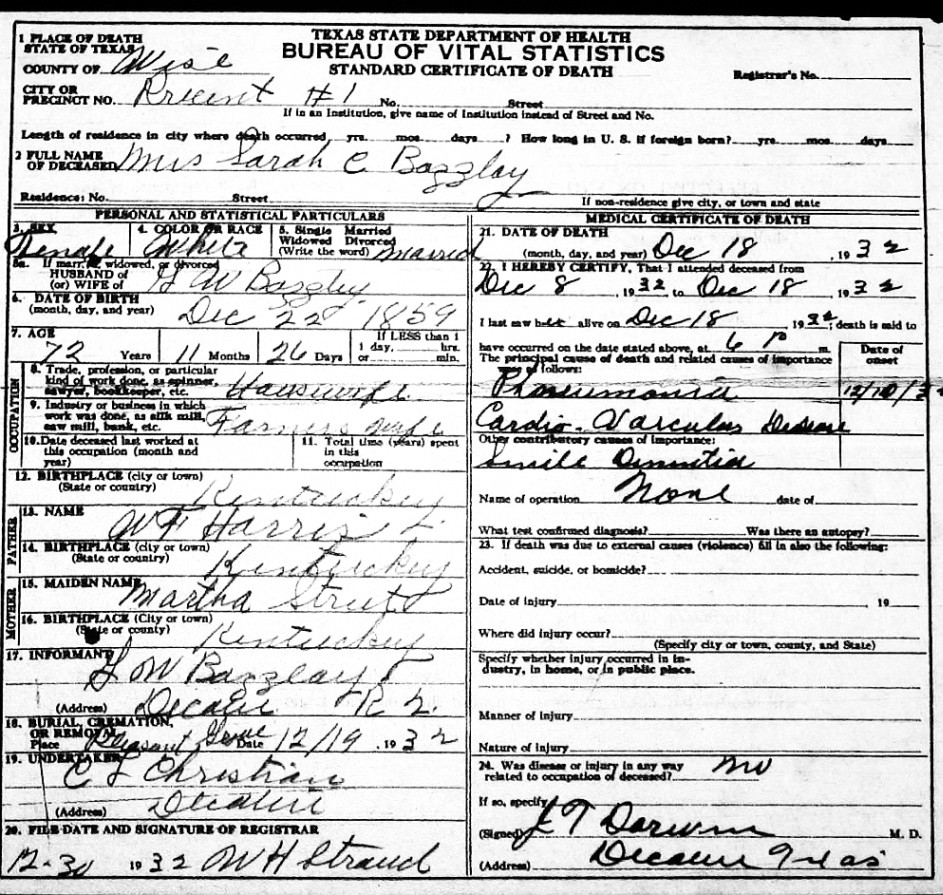 TEXAS STATE DEPARTMENT OF HEALTH
BUREAU OF VITAL STATISTICS
STANDARD CERTIFICATE OF DEATH
1 PLACE OF DEATH
STATE OF TEXAS
COUNTY OF Wise
Registrar's No.
CITY OR
PRECINCT NO. Precint #1 No. Street
If in an Institution, give name of Institution instead of Street and No.
Length of residence in city where death occurred yrs. mos. days ? How long in U. S. if foreign born? yrs. mos. days
2 FULL NAME
OF DECEASED Mrs Sarah C Bazzlay
Residence: No. Street If non-residence give city, or town and state
PERSONAL AND STATISTICAL PARTICULARS
3. SEX Female
4. COLOR OR RACE White
5. Single Married
Widowed Divorced
(Write the word) Married
5a. If married, widowed, or divorced
HUSBAND of
(or) WIFE of W Bazzley
6. DATE OF BIRTH
(month, day, and year) Dec 22 1859
7. AGE 72 Years 11 Months 26 Days
If LESS than 1
1 day, hrs.
or min.
OCCUPATION
8. Trade, profession, or particular
kind of work done, as spinner,
sawyer, bookkeeper, etc. Housewife
9. Industry or business in which
work was done, as silk mill,
saw mill, bank, etc. Farmers wife
10. Date deceased last worked at
this occupation (month and
year)
11. Total time (years) spent
in this
occupation
12. BIRTHPLACE (city or town)
(State or country) Kentuckey
FATHER
13. NAME W F Harris
14. BIRTHPLACE (city or town)
(State or country) Kentuckey
MOTHER
15. MAIDEN NAME Martha
16. BIRTHPLACE (City or town)
(State or county) Kentuckey
17. INFORMANT W Bazzlay
(Address) Decatur R 2
18. BURIAL, CREMATION,
OR REMOVAL
Place Pleasant Grove Date 12/19 , 1932
19. UNDERTAKER C L Christian
(Address) Decatur
20. FILE DATE AND SIGNATURE OF REGISTRAR
12-30 1932 W H Stroud
MEDICAL CERTIFICATE OF DEATH
21. DATE OF DEATH
(month, day, and year) Dec 18 , 1932
22. I HEREBY CERTIFY, That I attended deceased from
Dec 8 , 1932 to Dec 18 , 1932
I last saw her alive on Dec 18 1932; death is said to
have occurred on the date stated above, at 6 P m.
The principal cause of death and related causes of importance
as follows:
Date of
onset
Pneumonia 12/10/3
Cardio-Vascular Disease
Other contributory causes of importance:
Senile
Name of operation None date of
What test confirmed diagnosis? Was there an autopsy?
23. If death was due to external causes (violence) fill in also the following:
Accident, suicide, or homicide?
Date of injury 19
Where did injury occur?
(Specify city or town, county, and State)
Specify whether injury occurred in in-
dustry, in home, or in public place.
Manner of injury
Nature of injury
24. Was disease or injury in any way
related to occupation of deceased? no
If so, specify
(Signed) J T Darwin M. D.
(Address) Decatur Texas